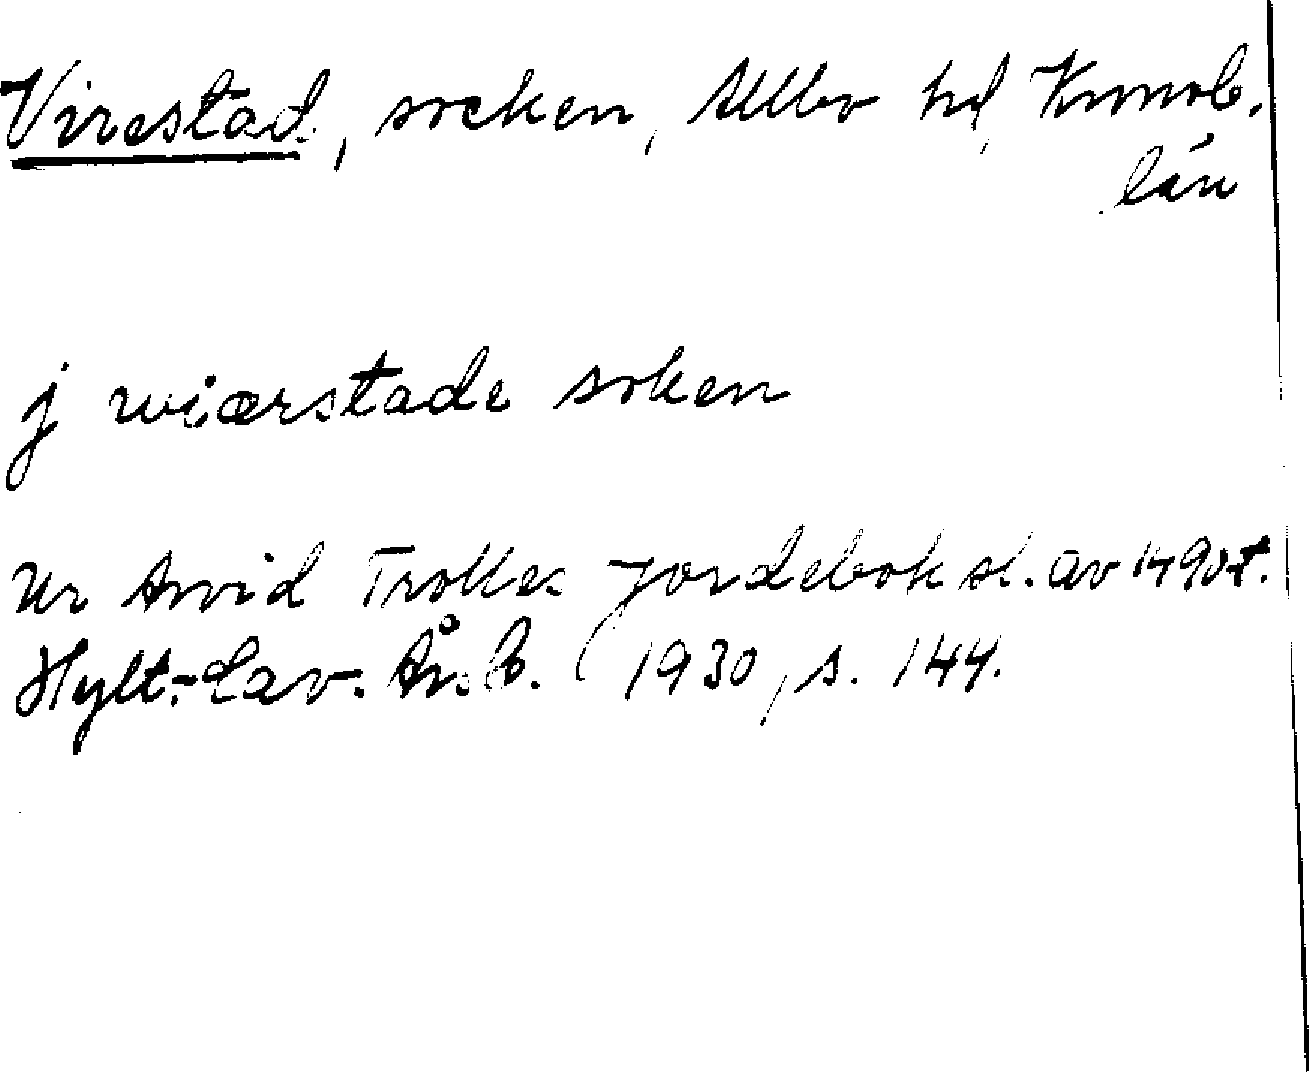 Virestad, socken, Allbo hd, Kronob.
län
j wiærstade soken
Ur Arvid Trolles jordebok sl. av 1490-t.
Hylt.-Cav. År.b. 1930, s. 144.